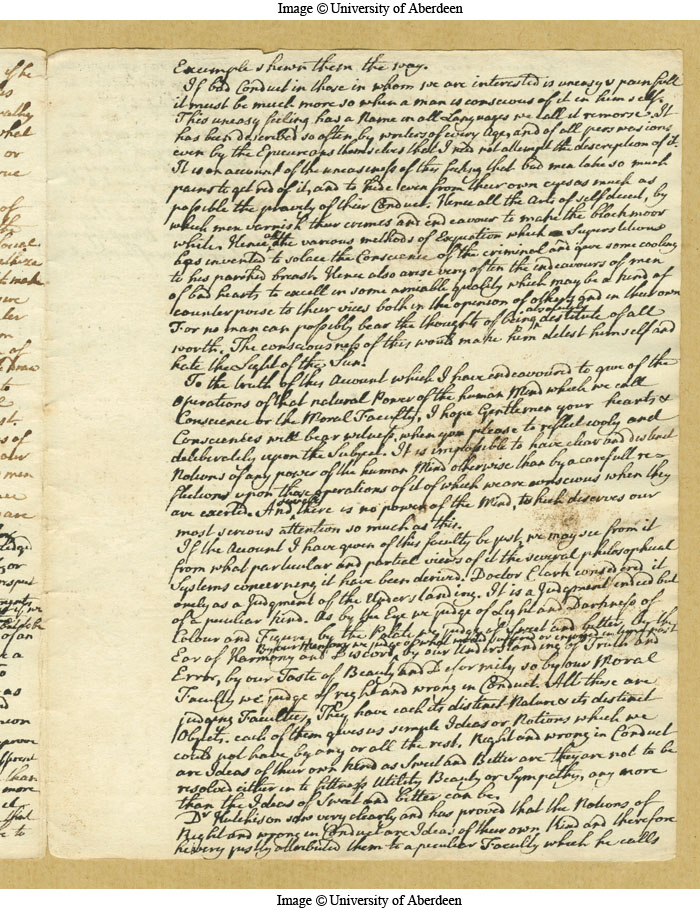 Image © University of Aberdeen
Example shewn them the way.
If bad Conduct in those in whom we are interested is uneasy & painfull
it must be much more so when a man is conscious of it in himself.
This uneasy feeling has a Name in all Languages we call it remorse. It
has been described so often by writers of every Age, and of all persuasions
even by the Epicureans themselves that I need not attempt the description of it.
It is on account of the uneasiness of this feeling that bad men take so much
pains to get rid of it, and to hide even from their own eyes as much as
possible the pravity of their Conduct. Hence all the Arts of self deceit, by
which men varnish their crimes and endeavour to make the blackmoor
white. Hence the various methods of Expiation which Superstition
has invented to solace the Conscience of the criminal and give some cooling
to his parched breast. Hence also arise very often the endeavours of men
of bad hearts to excell in some amiable quality which may be a kind of
counterpoise to their vices both in the opinion of others and in their own
For no man can possibly bear the thoughts of being absolutely destitute of all
worth. The consciousness of this would make him detest himself and
hate the Light of the Sun.
To the truth of this Account which I have endeavoured to give of the
operations of that natural Power of the human Mind which we call
Conscience or the Moral Faculty, I hope Gentlemen your hearts &
Consciences will bear witness, when you please to reflect cooly and
deliberately upon the Subject. It is impossible to have clear and distinct
Notions of any power of the human Mind otherwise than by a carefull re-
flections upon those operations of it of which we are conscious when they
are exerted. And surely there is no power of the Mind, which deserves our
most serious attention so much as this.
If the Account I have given of this faculty be just, we may see from it
from what particular and partial views of it the several philosophical
Systems concerning it have been derived. Doctor Clark considered it
only as a Judgment of the Understanding. It is a Judgment indeed but
of a peculiar kind. As by the Eye we judge of Light and Darkness of
Colour and Figure, by the Palate we judge of Sweet and bitter, by the
By our Memory we judge of what we did or enjoyed in time past
Ear of Harmony and Discord, by our Understanding of Truth and
Error, by our Taste of Beauty and Deformity so by our Moral
Faculty we judge of right and wrong in Conduct. All these are
judging Faculties. They have each its distinct Nature & its distinct
Objects. each of them gives us simple Ideas or Notions which we
could not have by any or all the rest. Right and wrong in Conduct
are Ideas of their own kind as Sweet and Bitter are they are not to be
resolved either into fittness Utility Beauty or Sympathy, any more
than the Ideas of Sweet and bitter can be.
Dr Hutchison saw very clearly and has proved that the Notions of
Right and wrong in Conduct are Ideas of their own Kind and therefore
he very justly attributed them to a peculiar Faculty which he calls
Image © University of Aberdeen